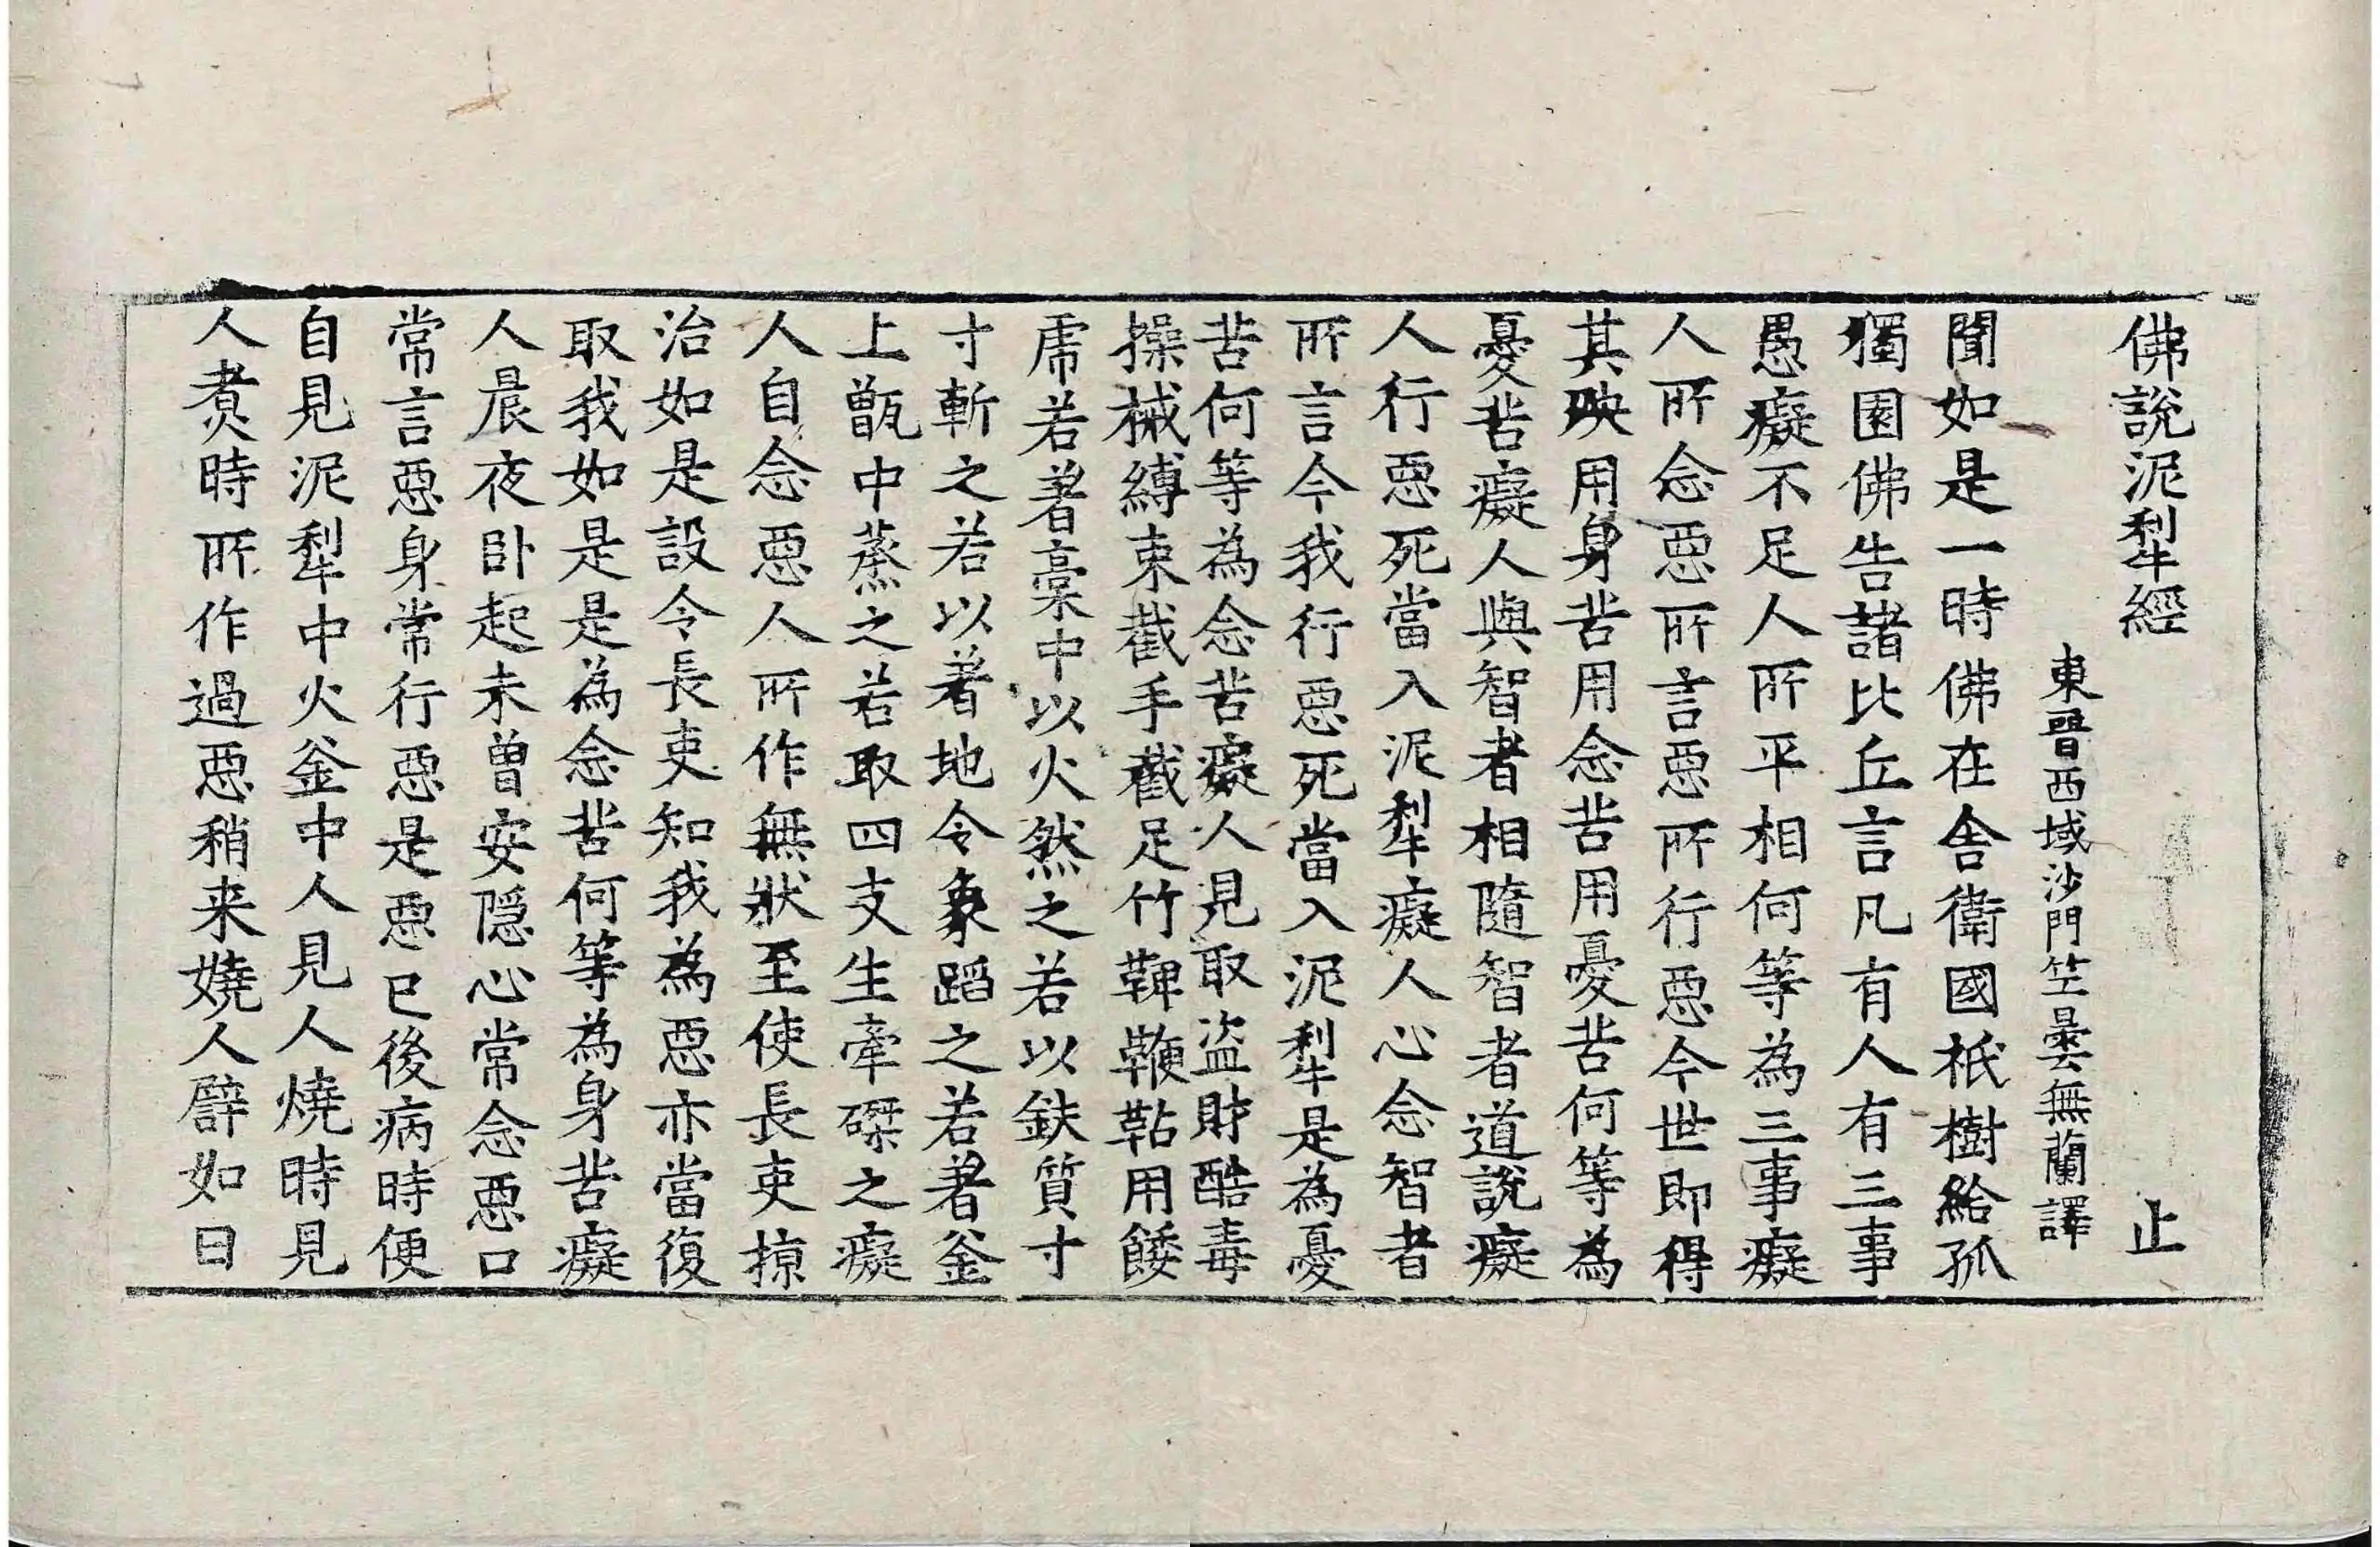 佛說泥犁經 止
東晉西域沙門竺曇無蘭譯
聞如是一時佛在舍衛國祇樹給孤
獨園佛告諸比丘言凡有人有三事
愚癡不足人所平相何等為三事癡
人所念惡所言惡所行惡今世即得
其殃用身苦用念苦用憂苦何等為
憂苦癡人與智者相隨智者道說癡
人行惡死當入泥犁癡人心念智者
所言今我行惡死當入泥犁是為憂
苦何等為念苦癡人見取盜財酷毒
操械縛束截手截足竹鞞鞭䩞用餧
虎若著藁中以火然之若以鈇質寸
寸斬之若以著地令象蹈之若著釜
上甑中蒸之若取四支生牽磔之癡
人自念惡人所作無狀至使長吏掠
治如是設令長吏知我為惡亦當復
取我如是是為念苦何等為身苦癡
人晨夜卧起未曾安隱心常念惡口
常言惡身常行惡是惡已後病時便
自見泥犁中火釜中人見人燒時見
人煑時所作過惡稍来嬈人譬如日